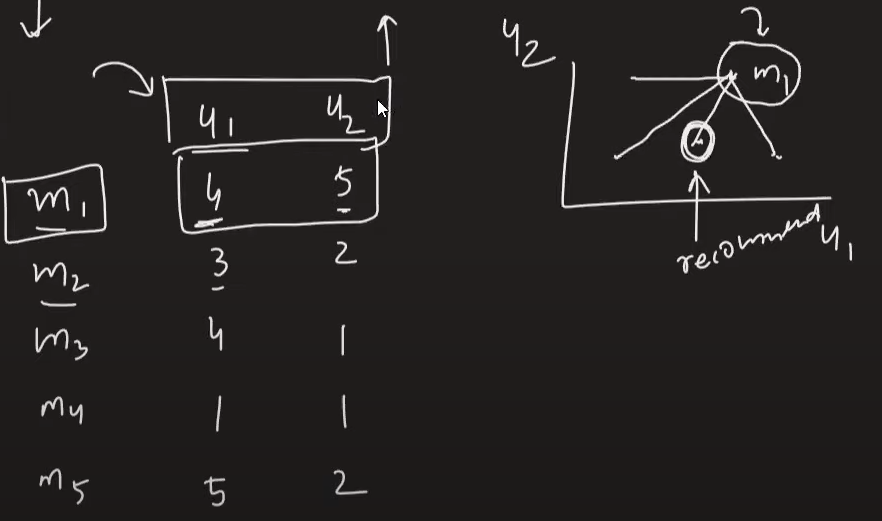 u1 u2
m1 4 5
m2 3 2
m3 4 1
m4 1 1
m5 5 2
u2
m1
recommend
u1